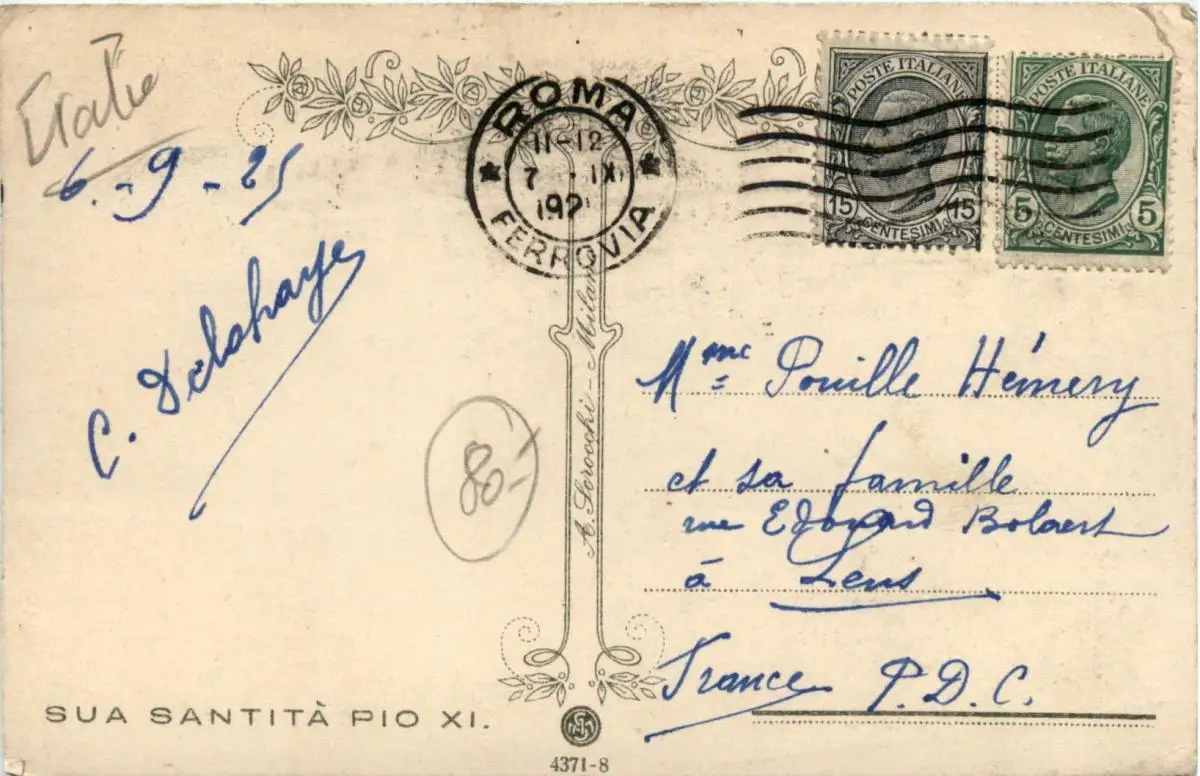 Italie
6-9-25
C. Delahaye
ROMA
11-12
7 - IX
192
FERROVIA
POSTE ITALIANE
15 15
CENTESIMI
POSTE ITALIANE
5 5
CENTESIMI
A. Scrocchi - Milano
80'-
Mme Pouille Hémery
et sa famille
rue Edouard Bolaert
à Lens
France P.D.C.
SUA SANTITÀ PIO XI.
4371-8